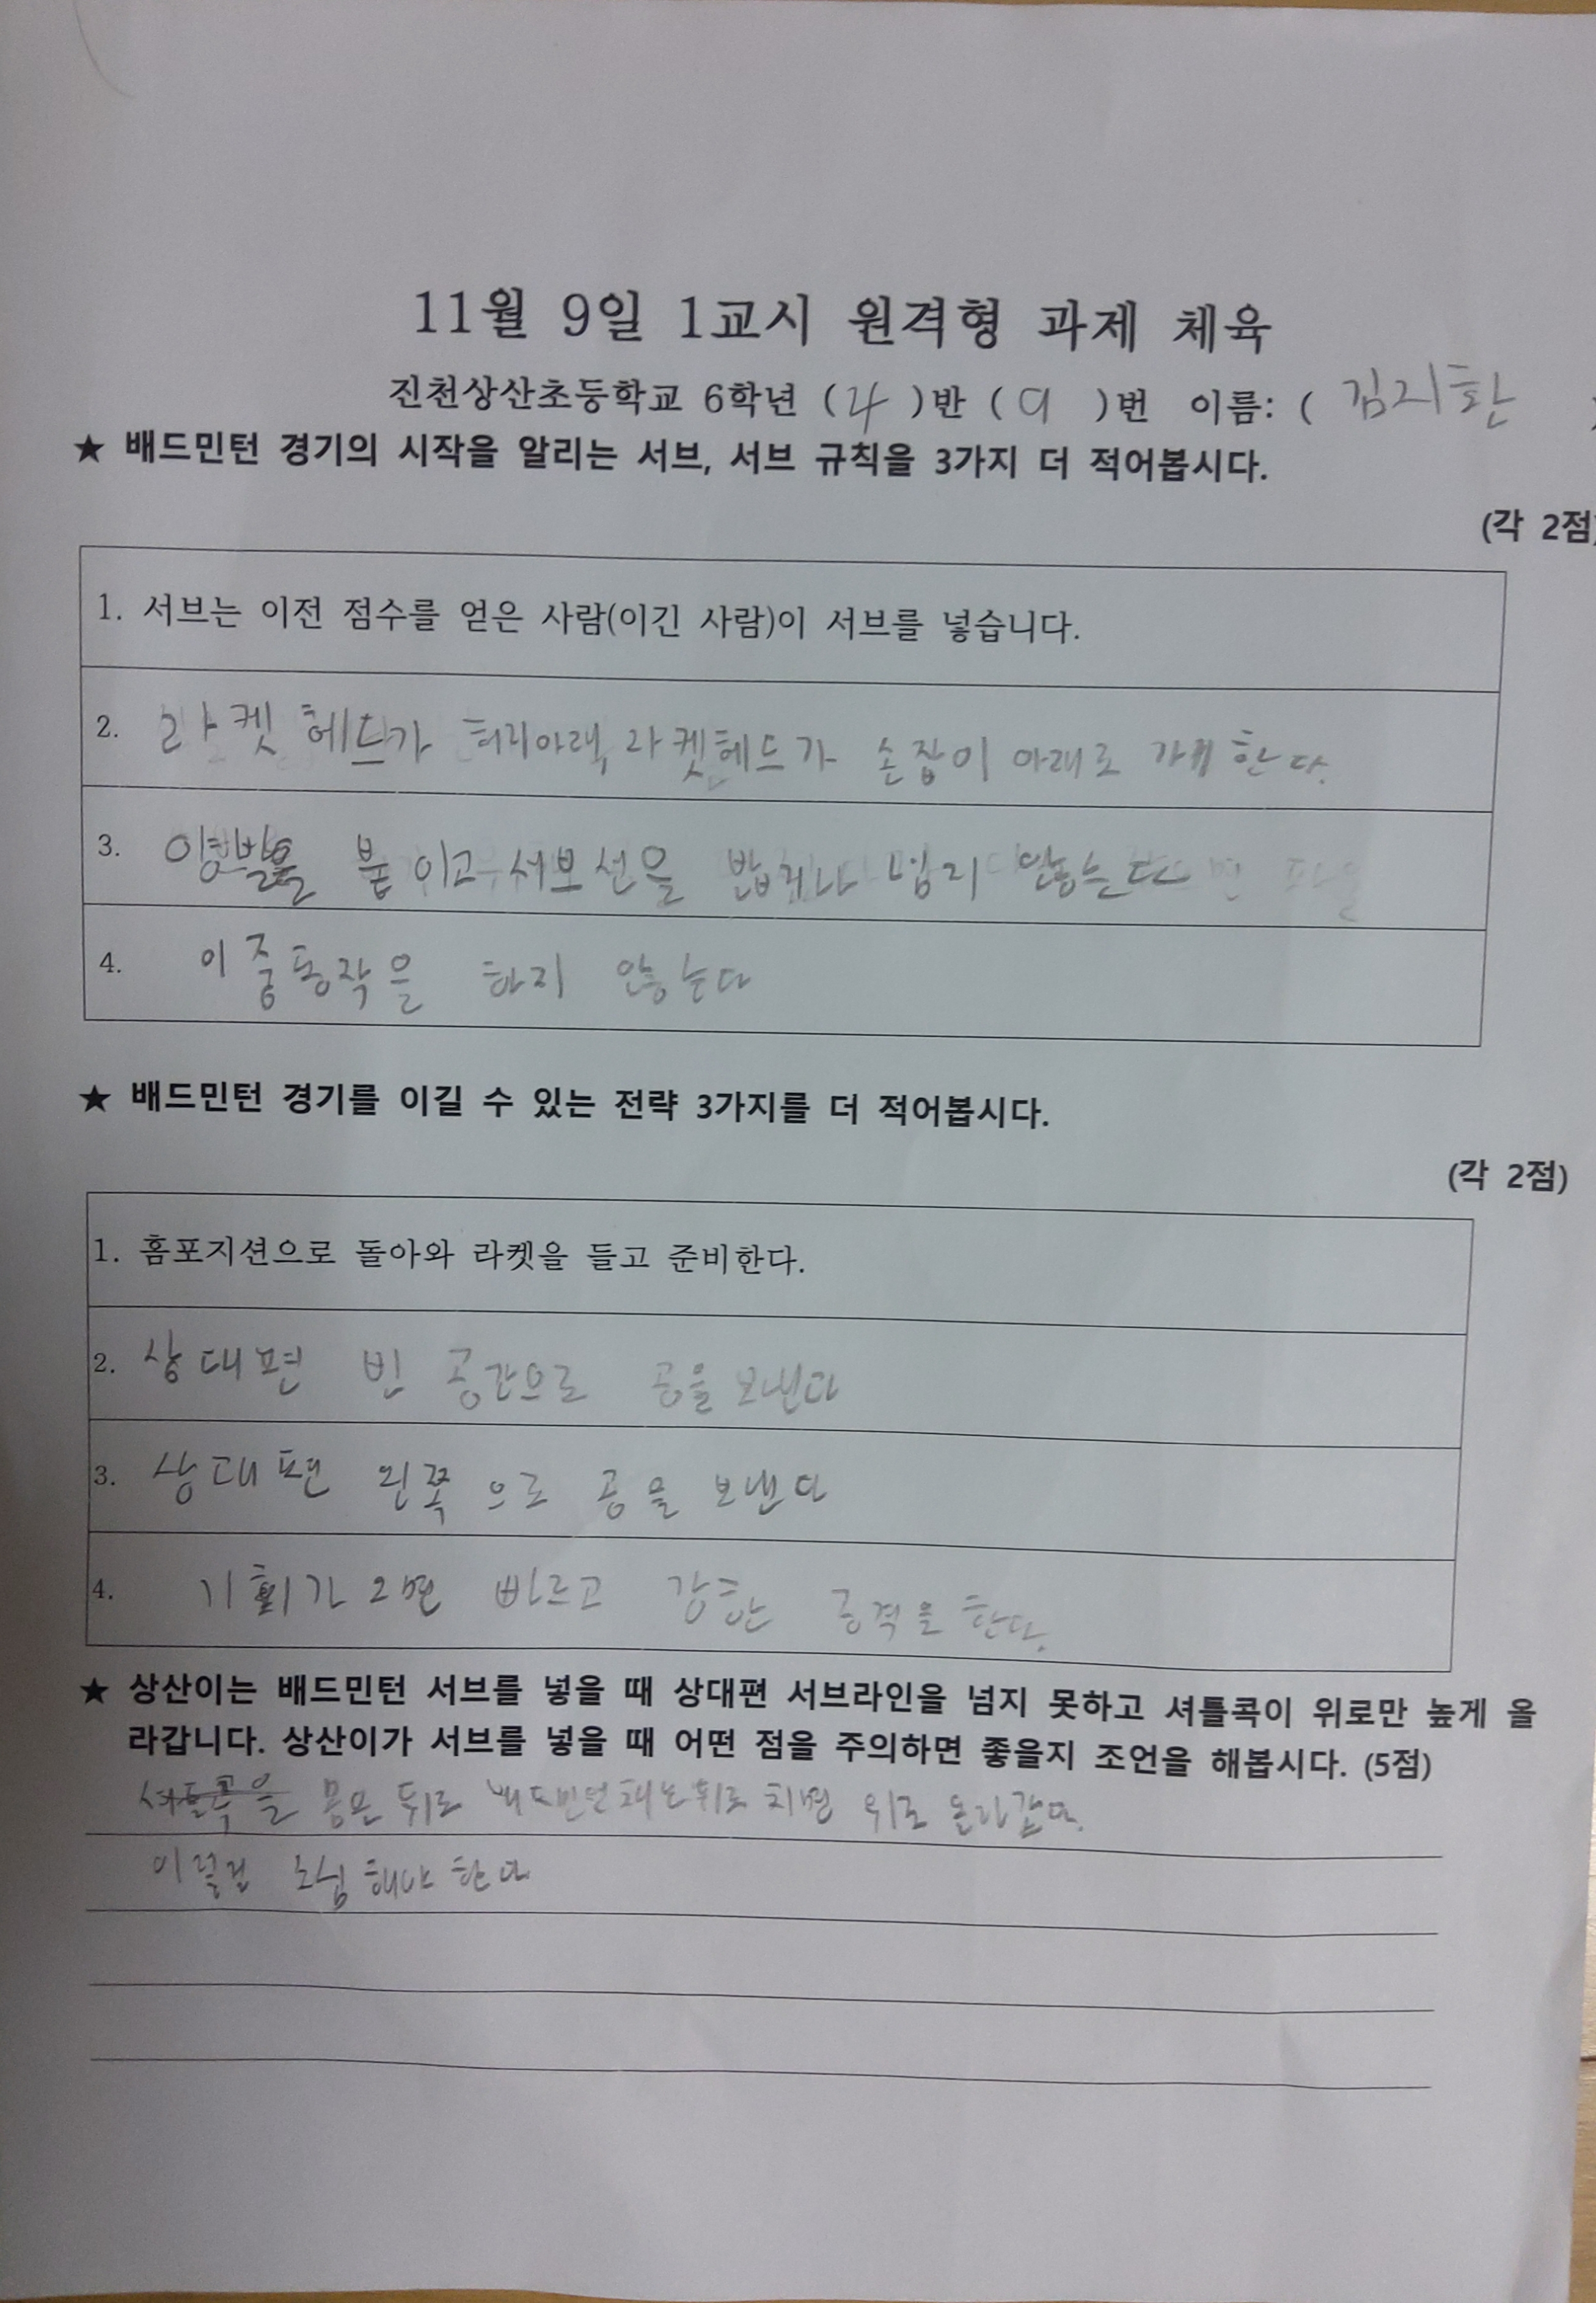 11월 9일 1교시 원격형 과제 체육
진천상산초등학교 6학년 (4)반 (9)번 이름: (김지환
★ 배드민턴 경기의 시작을 알리는 서브, 서브 규칙을 3가지 더 적어봅시다.
(각 2점)
1. 서브는 이전 점수를 얻은 사람(이긴 사람)이 서브를 넣습니다.
2. 라켓 헤드가 허리아래, 라켓헤드가 손잡이 아래로 가게 한다.
3. 양발을 붙이고 서브선을 밟거나 넘지 않는다
4. 이중동작을 하지 않는다
★ 배드민턴 경기를 이길 수 있는 전략 3가지를 더 적어봅시다.
(각 2점)
1. 홈포지션으로 돌아와 라켓을 들고 준비한다.
2. 상대편 빈 공간으로 공을 보낸다
3. 상대편 왼쪽으로 공을 보낸다
4. 기회가 오면 빠르고 강한 공격을 한다.
★ 상산이는 배드민턴 서브를 넣을 때 상대편 서브라인을 넘지 못하고 셔틀콕이 위로만 높게 올
라갑니다. 상산이가 서브를 넣을 때 어떤 점을 주의하면 좋을지 조언을 해봅시다. (5점)
몸은 뒤로 배드민턴채는 뒤로 치면 위로 올라갑
이럴걸 조심 해야 한다